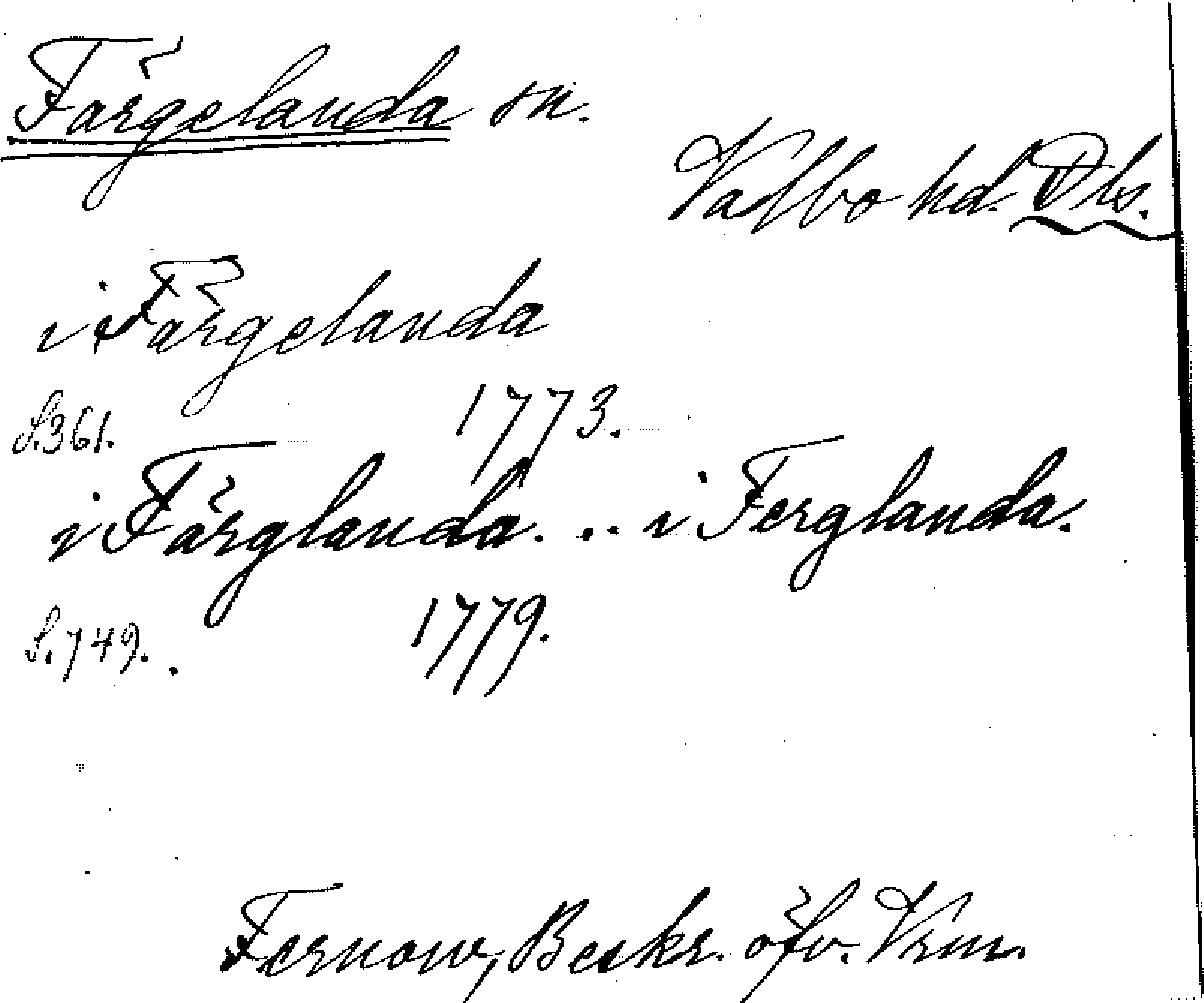 Färgelanda sn.
Valbo hd. Dls.
i Färgelanda
S.361. 1773.
i Färglanda. .. i Ferglanda.
S.749. 1779.
Fernow, Beskr. öfv. Vrm.